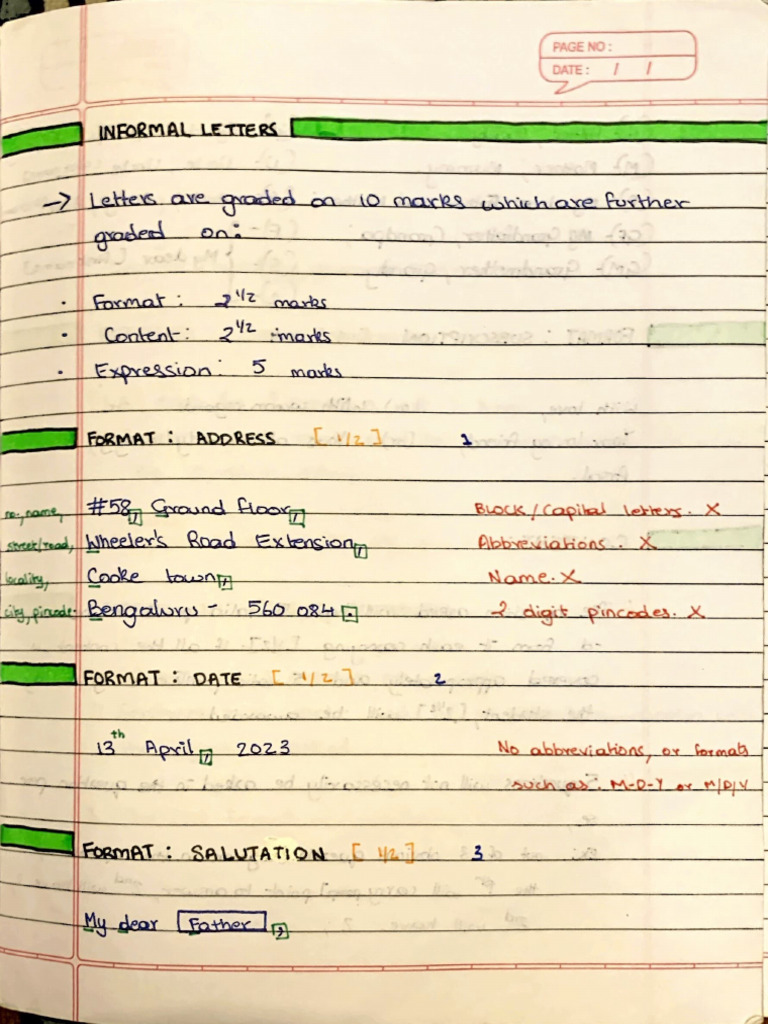 PAGE NO :
DATE : / /
INFORMAL LETTERS
→ Letters are graded on 10 marks which are further
graded on:
· Format : 2 1/2 marks
· Content : 2 1/2 marks
· Expression : 5 marks
FORMAT : ADDRESS [ 1/2 ] 1
no., name, #58, Ground floor, Block/Capital letters. X
street/road, Wheeler's Road Extension, Abbreviations. X
locality, Cooke town, Name. X
city, pincode. Bengaluru - 560 084. 2 digit pincodes. X
FORMAT : DATE [ 1/2 ] 2
13th April, 2023 No abbreviations, or formats
such as : M-D-Y or M/D/Y
FORMAT : SALUTATION [ 1/2 ] 3
My dear Father,